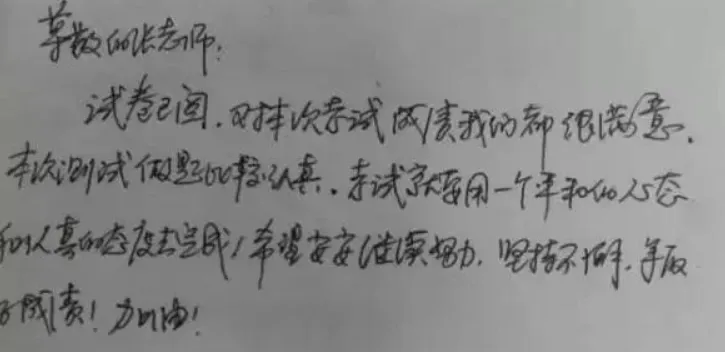 尊敬的张老师:
试卷已阅,对本次考试成绩我们都很满意,
本次测试做题比较认真,考试就要用一个平和的心态
和认真的态度去完成!希望安安继续努力,坚持不懈,争取
好成绩!加油!